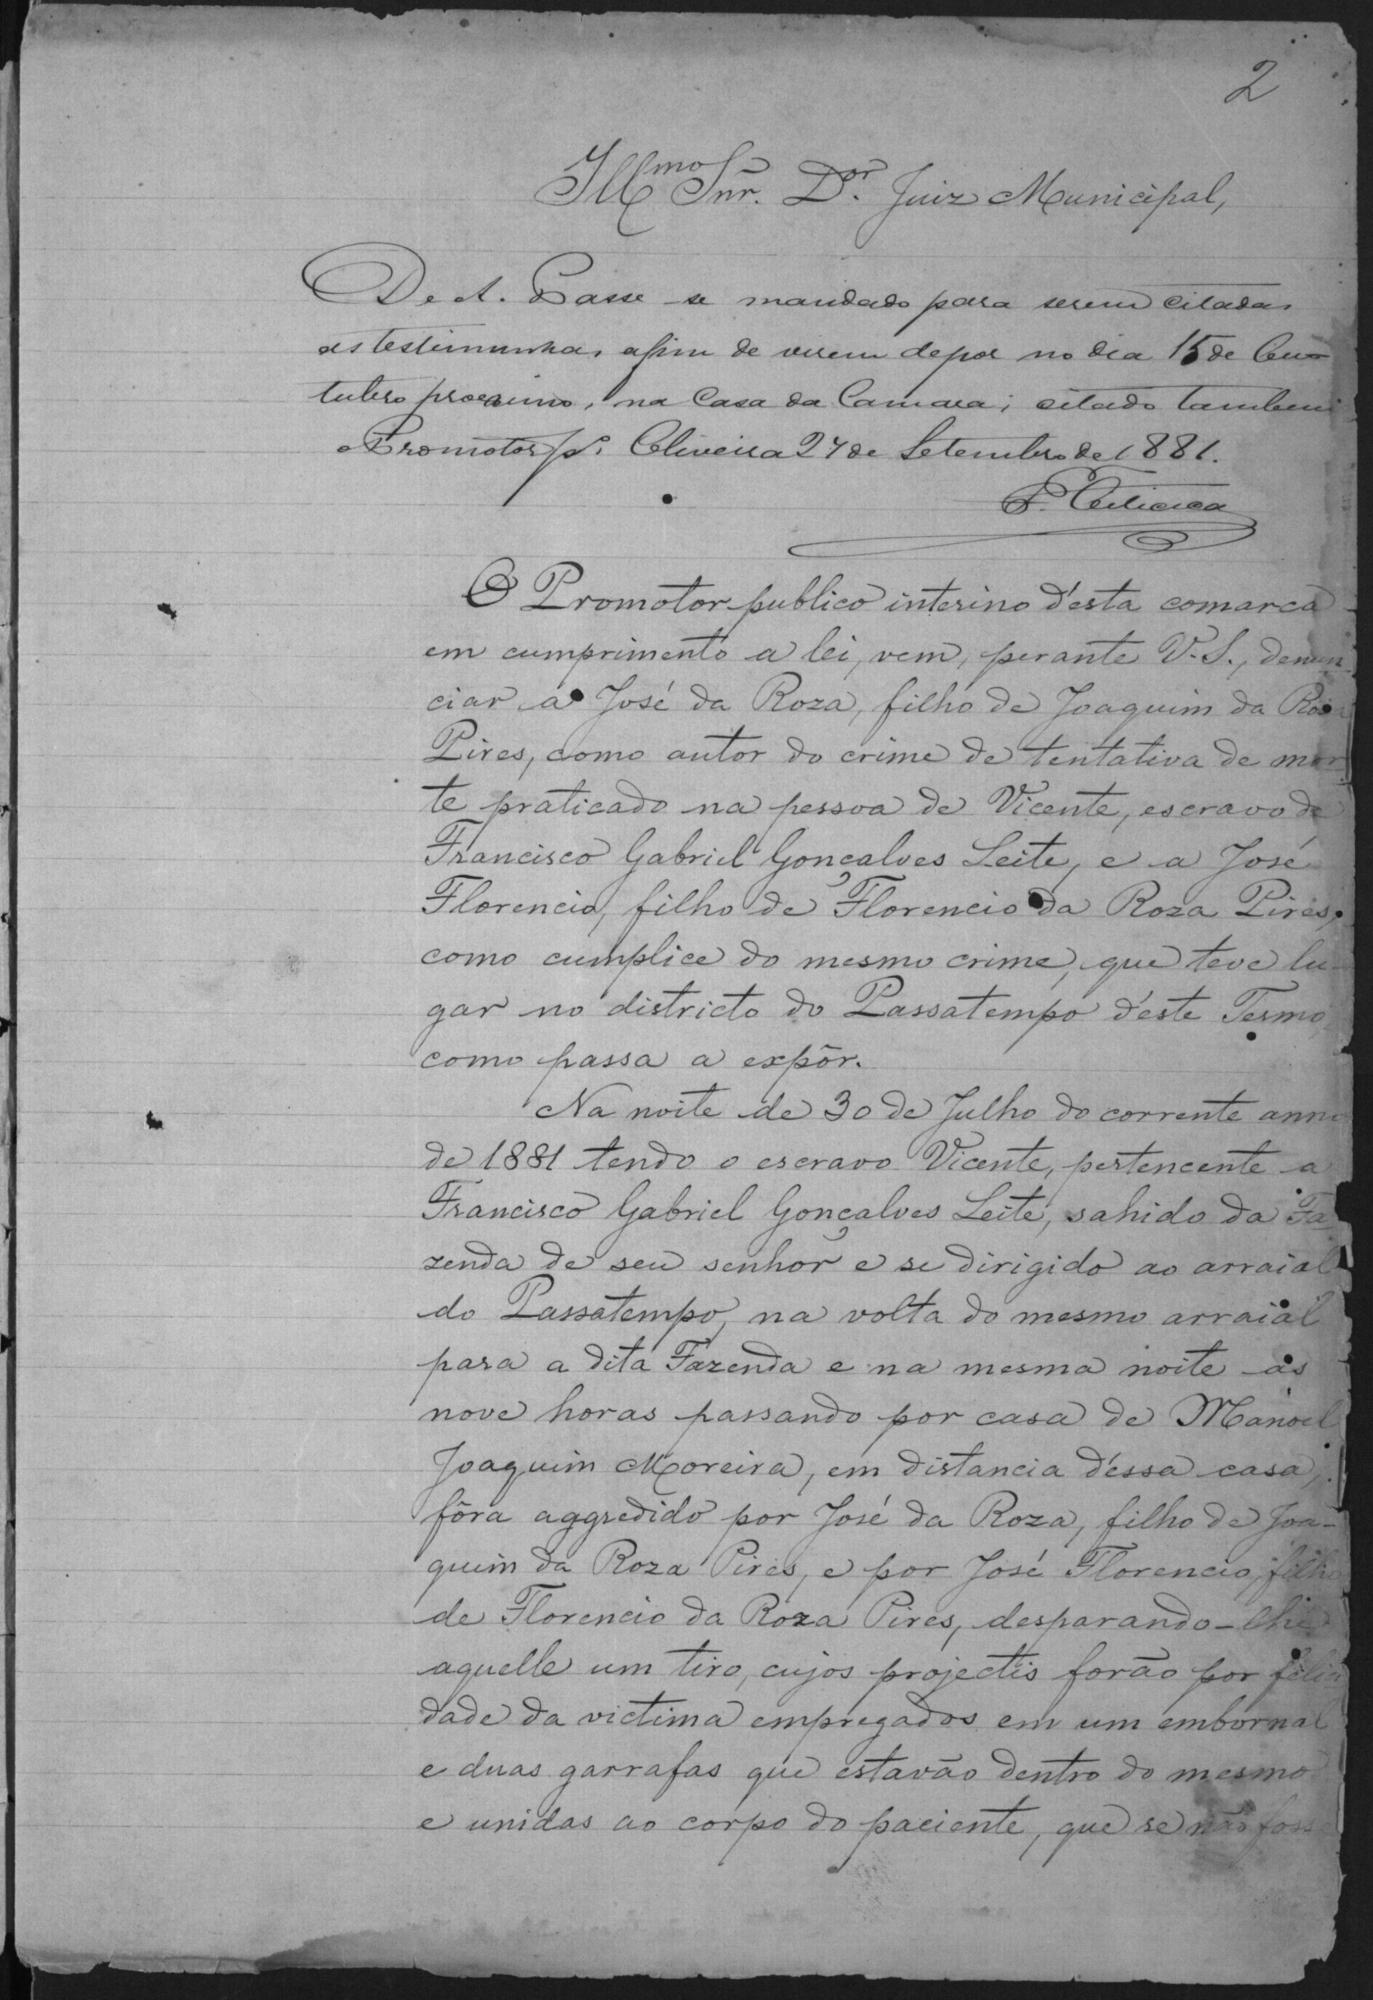 2
Ill.mo Snr. D.or Juiz Municipal,
D. e A. Passe-se mandado para serem citadas
as testimunhas afim de virem depor no dia 15 de Ou-
tubro proximo, na Casa da Camara; citado tambem
o Promotor p.º Oliveira 27 de Setembro de 1881.
O Promotor publico interino d'esta comarca
em cumprimento a lei, vem, perante V. S., denun-
ciar á José da Roza, filho de Joaquim da Roza
Pires, como autor do crime de tentativa de mor-
te praticado na pessoa de Vicente, escravo de
Francisco Gabriel Gonçalves Leite, e a José
Florencio, filho de Florencio da Roza Pires,
como cumplice do mesmo crime, que teve lu-
gar no districto do Passatempo d'este Termo,
como passa a expôr.
Na noite de 30 de Julho do corrente anno
de 1881 tendo o escravo Vicente, pertencente a
Francisco Gabriel Gonçalves Leite, sahido da Fa-
zenda de seu senhor e se dirigido ao arraial
do Passatempo, na volta do mesmo arraial
para a dita Fazenda e na mesma noite ás
nove horas passando por casa de Manoel
Joaquim Moreira, em distancia d'essa casa,
fôra aggredido por José da Roza, filho de Joa-
quim da Roza Pires, e por José Florencio, filho
de Florencio da Roza Pires, desparando-lhe
aquelle um tiro, cujos projectis forão por felici
dade da victima empregados em um embornal
e duas garrafas que estavão dentro do mesmo
e unidas ao corpo do paciente, que se não fosse